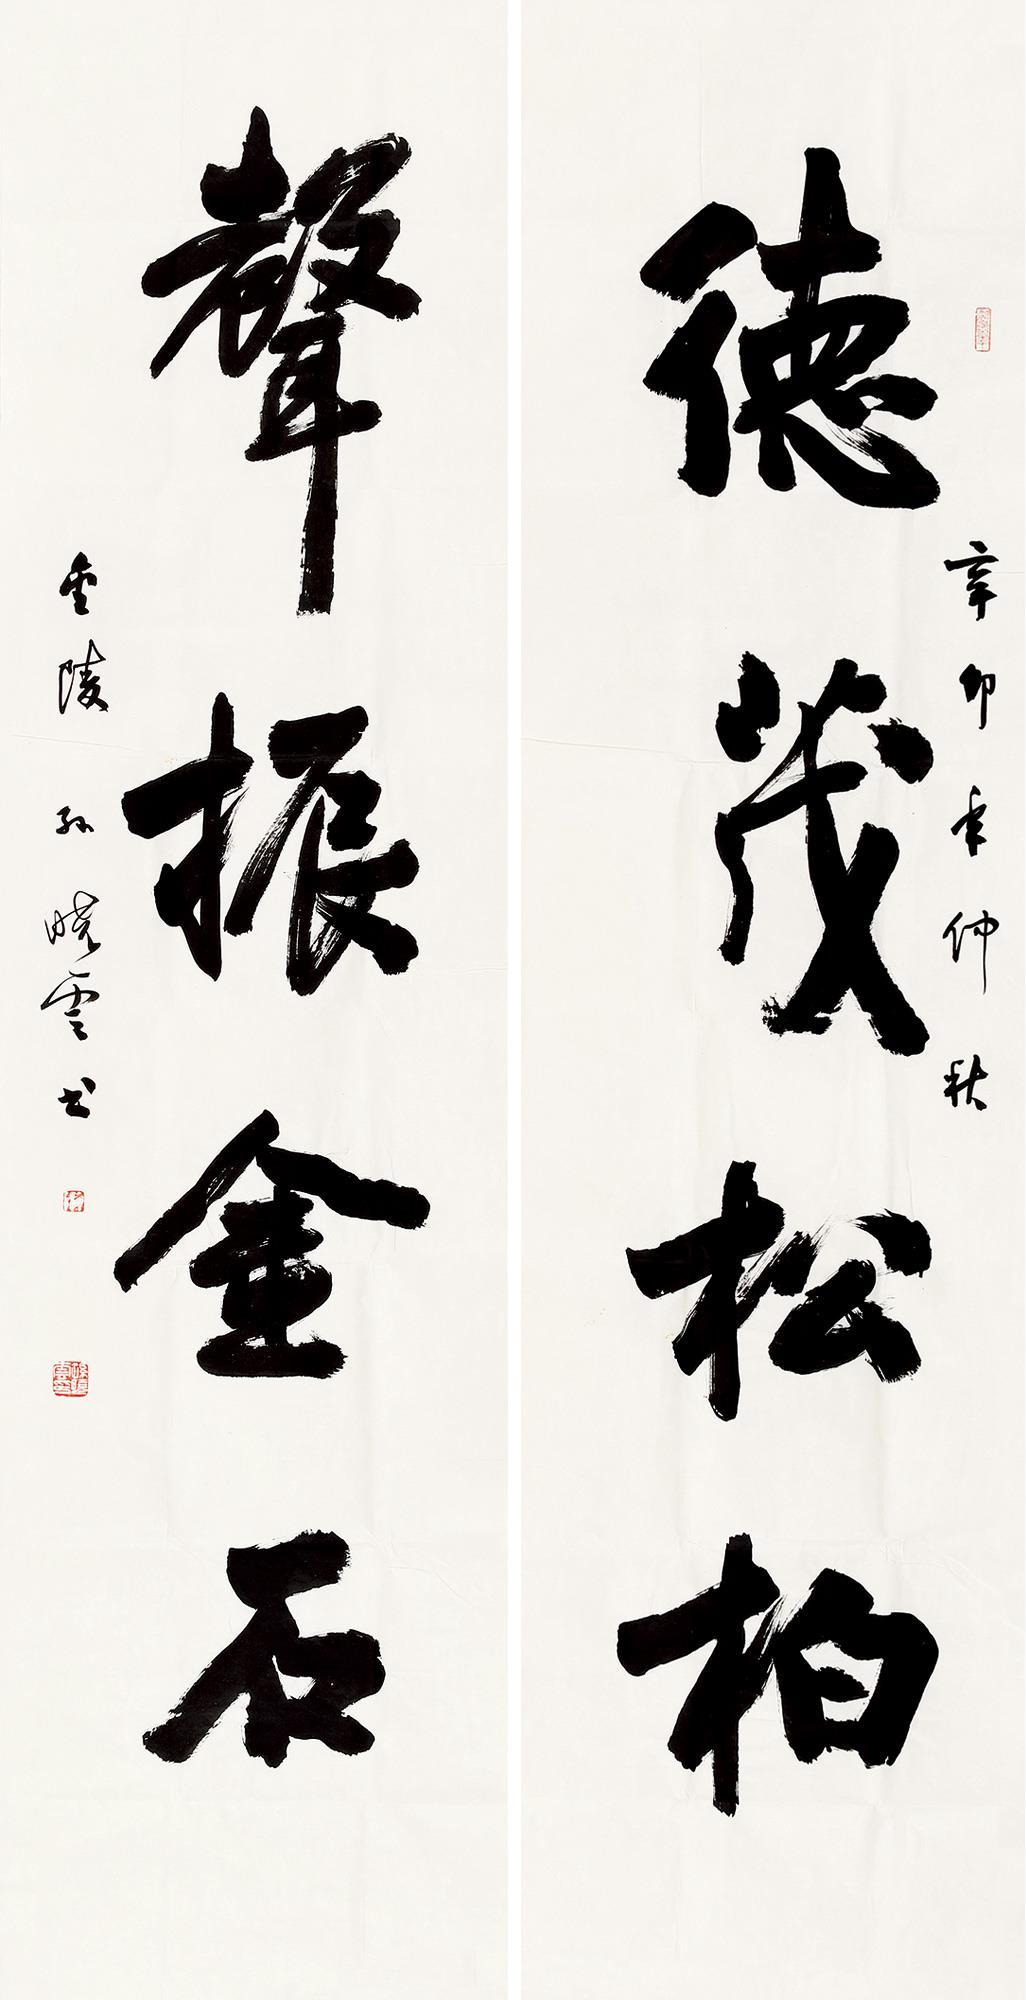 德茂松柏
辛卯年仲秋
聲振金石
金陵孙晓雲书